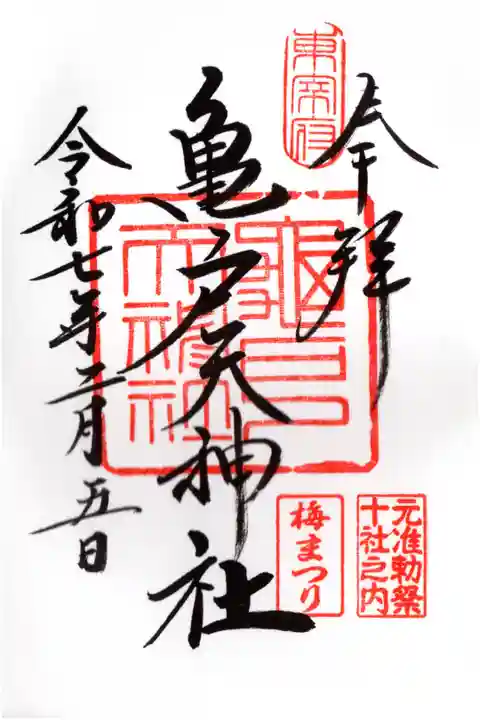 東宰府
奉拝
亀戸天神社
令和七年二月五日
元准勅祭
十社之内
梅まつり